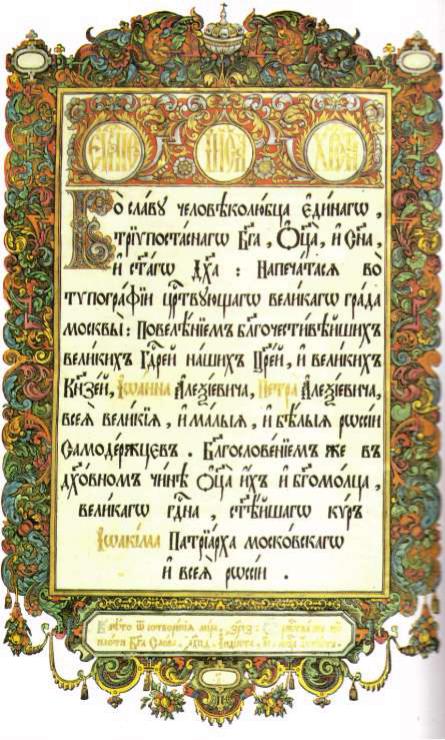 Во славу человѣколюбца єдинагѡ,
трїупостаснагѡ бг҃а, ѻц҃а, и сн҃а,
и ст҃агѡ дх҃а : Напечатася во
тѵпографїи црⷭ҇твующагѡ великагѡ града
москвы: Повелѣнїемъ бл҃гочестивѣйшихъ
великихъ гдⷭ҇рей нашихъ цр҃ей, и великихъ
кнѧзей, Іѡанна Алеѯїевича, Петра Алеѯїевича,
всеѧ великїѧ, и малыѧ, и бѣлыѧ рѡссїи
Самодержцєвъ. Бл҃гословенїемъ же въ
дх҃овномъ чинѣ ѻц҃а ихъ и бг҃омолца,
великагѡ гдⷭ҇на, ст҃ѣйшагѡ кѵръ
Іѡакіма Патрїарха московскагѡ
и всеѧ рѡссїи .
В лѣто ѿ сотворенїѧ мира
плоти бг҃а слова